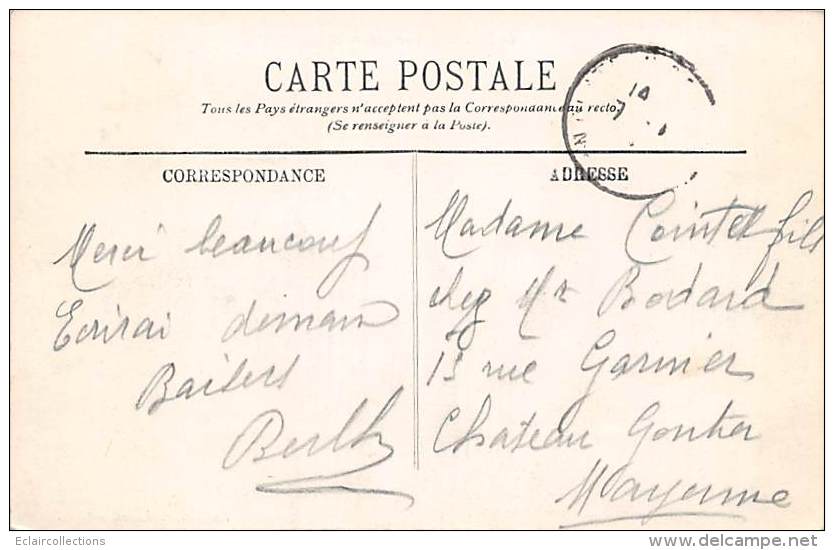 CARTE POSTALE
Tous les Pays étrangers n'acceptent pas la Correspondance au recto.
(Se renseigner à la Poste).
CORRESPONDANCE
ADRESSE
Merci beaucoup
Ecrirai demain
Baisers
Berthe
Madame Cointet fils
chez Mr Bodard
13 rue Garnier
Chateau Gontier
Mayenne
Eclaircollections
delcampe.net